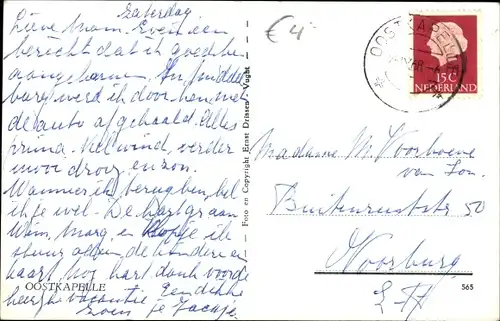 Zaterdag
Lieve Mam. Even een
bericht dat ik goed ben
aangekomen. In Middel
burg werd ik door hen met
de auto afgehaald. Alles
prima. Wel wind, verder
mooi droog en zon.
Wanneer ik terug ben, bel
ik je wel. De hartgr aan
Wim, Marg, en ik
stuur allen de kinderen een
kaart, nog hart dank voor de
heerlyke vacantie een dikke
zoen je Jackje.
OOSTKAPELLE
Foto en Copyright Ernst Drissen, Vught
€ 4
OOSTKAPELLE
15 C
NEDERLAND
Madame M. Voorhoeve
van Ion.
Buitenruststr 50
Voorburg
Z H
565